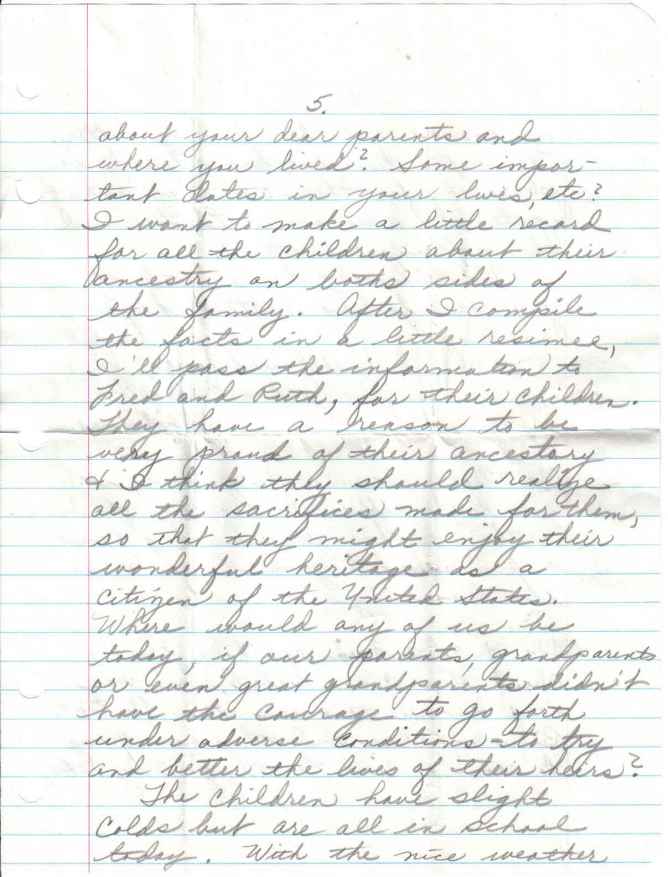 5.
about your dear parents and
where you lived? Some impor-
tant dates in your lives, etc?
I want to make a little record
for all the children about their
ancestry on boths sides of
the family. After I compile
the facts in a little resimee,
I'll pass the information to
Fred and Ruth, for their children.
They have a reason to be
very proud of their ancestory
& I think they should realize
all the sacrifices made for them,
so that they might enjoy their
wonderful heritage as a
citizen of the United States.
Where would any of us be
today, if our parents, grandparents
or even great grandparents didn't
have the courage to go forth
under adverse conditions - to try
and better the lives of their heirs?
The children have slight
colds but are all in school
today. With the nice weather